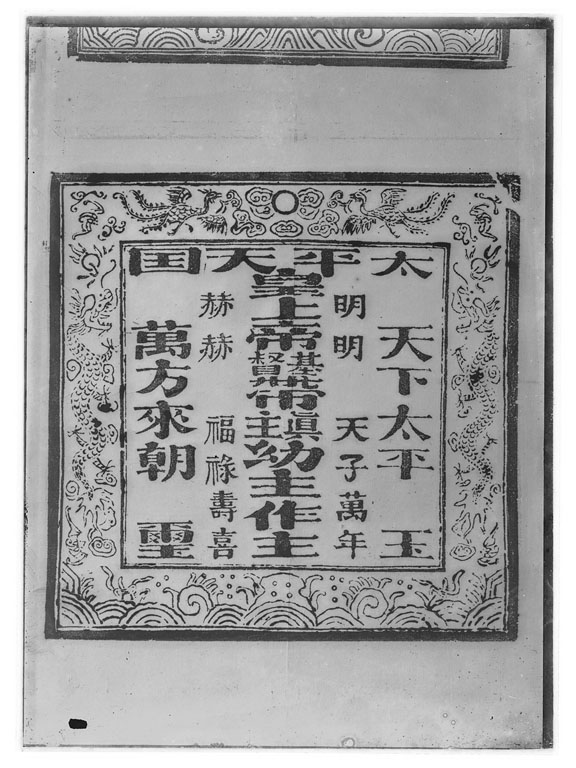 太平天囯
天下太平 玉
明明 天子萬年
皇上帝基督帶眞主幼主作主
赫赫 福祿壽喜
萬方來朝 璽